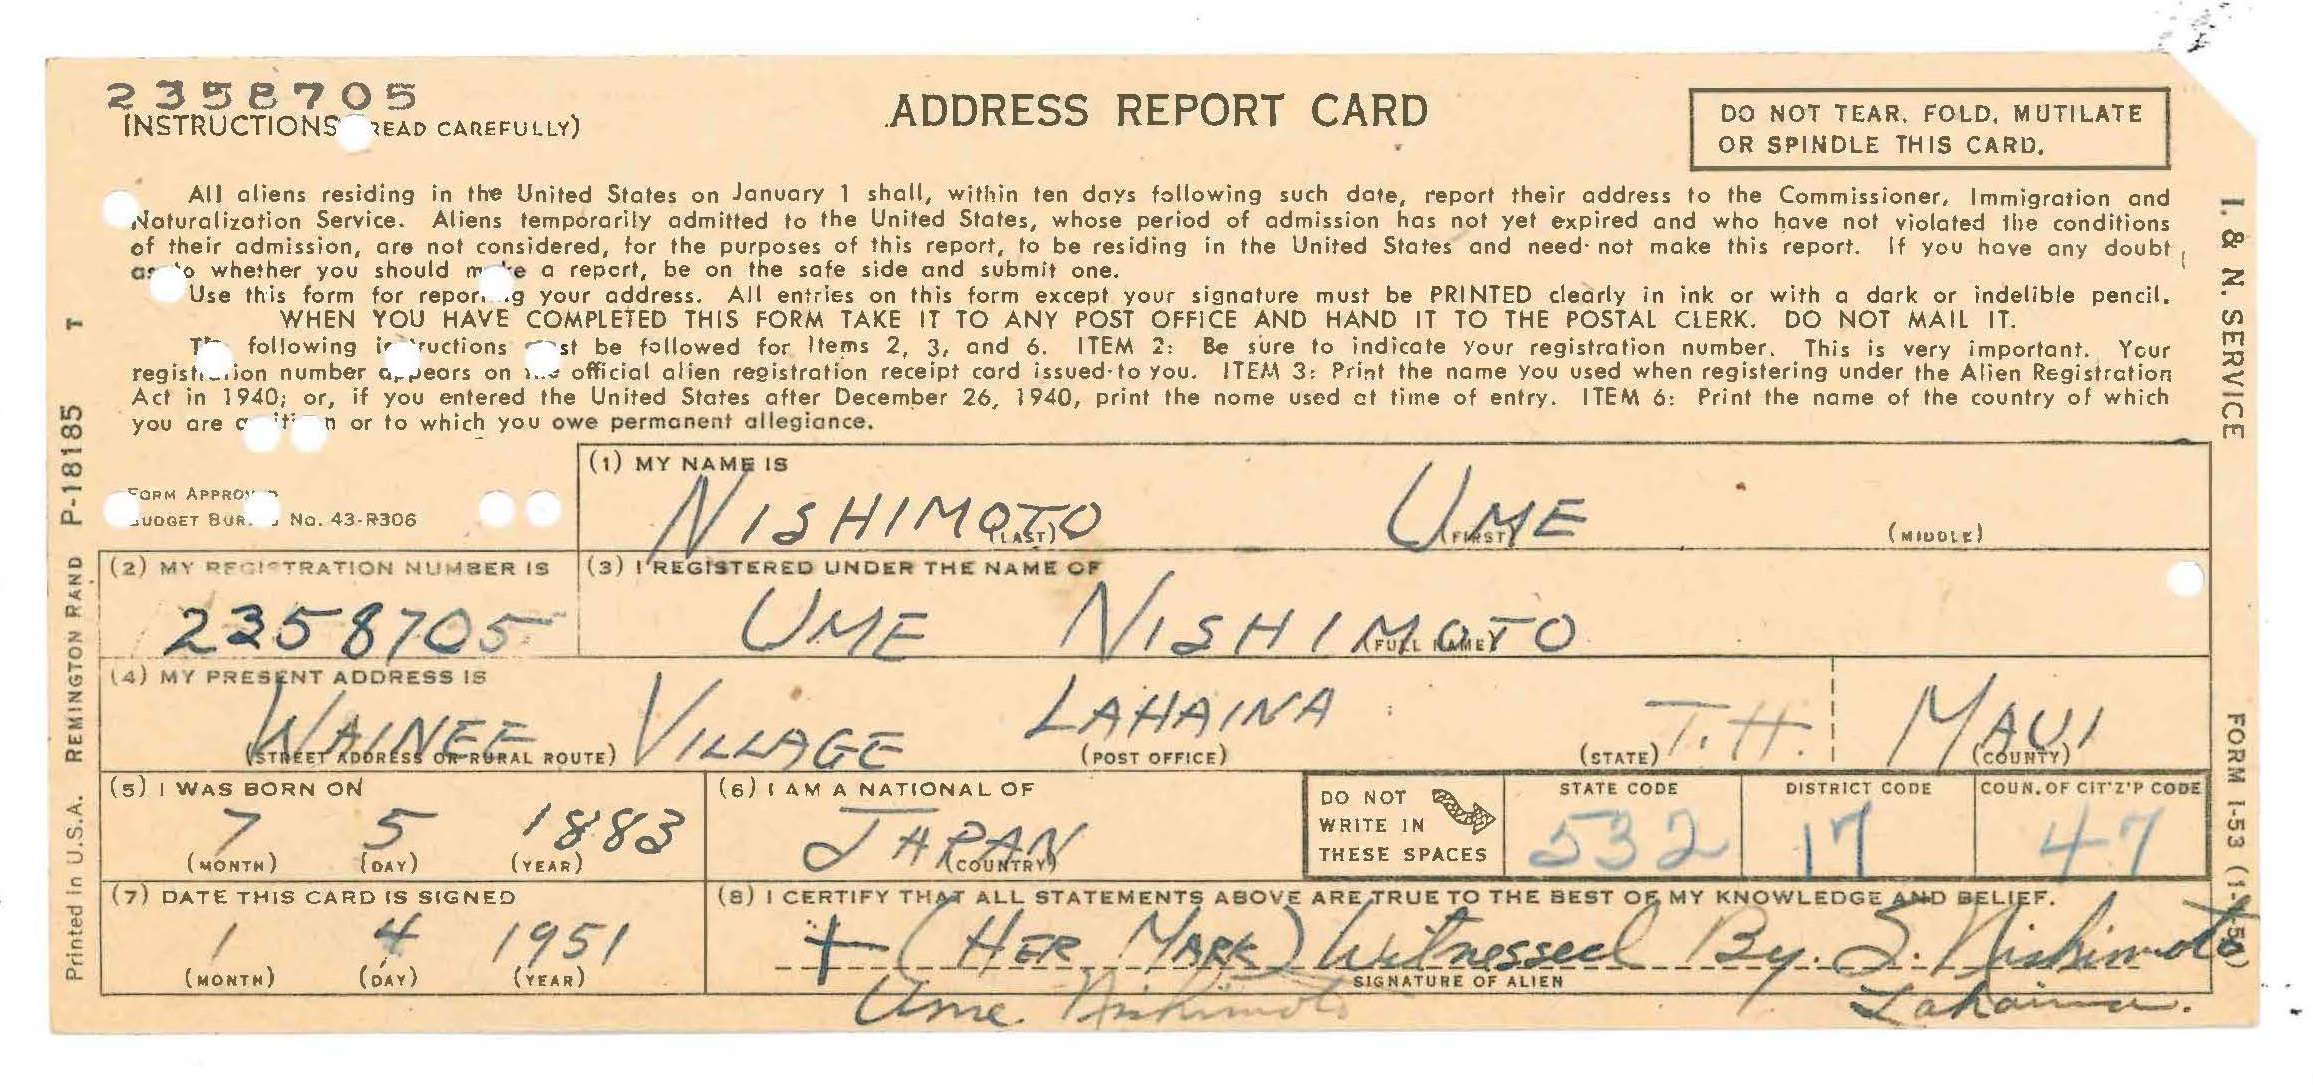 2358705
INSTRUCTIONS (READ CAREFULLY)
ADDRESS REPORT CARD
DO NOT TEAR, FOLD, MUTILATE
OR SPINDLE THIS CARD.
All aliens residing in the United States on January 1 shall, within ten days following such date, report their address to the Commissioner, Immigration and
Naturalization Service. Aliens temporarily admitted to the United States, whose period of admission has not yet expired and who have not violated the conditions
of their admission, are not considered, for the purposes of this report, to be residing in the United States and need not make this report. If you have any doubt
as to whether you should make a report, be on the safe side and submit one.
Use this form for reporting your address. All entries on this form except your signature must be PRINTED clearly in ink or with a dark or indelible pencil.
WHEN YOU HAVE COMPLETED THIS FORM TAKE IT TO ANY POST OFFICE AND HAND IT TO THE POSTAL CLERK. DO NOT MAIL IT.
The following instructions must be followed for Items 2, 3, and 6. ITEM 2: Be sure to indicate your registration number. This is very important. Your
registration number appears on the official alien registration receipt card issued to you. ITEM 3: Print the name you used when registering under the Alien Registration
Act in 1940; or, if you entered the United States after December 26, 1940, print the name used at time of entry. ITEM 6: Print the name of the country of which
you are a citizen or to which you owe permanent allegiance.
FORM APPROVED
BUDGET BUREAU No. 43-R306
(1) MY NAME IS
NISHIMOTO UME
(LAST) (FIRST) (MIDDLE)
(2) MY REGISTRATION NUMBER IS
2358705
(3) I REGISTERED UNDER THE NAME OF
UME NISHIMOTO
(FULL NAME)
(4) MY PRESENT ADDRESS IS
WAINEE VILLAGE LAHAINA T.H. MAUI
(STREET ADDRESS OR RURAL ROUTE) (POST OFFICE) (STATE) (COUNTY)
(5) I WAS BORN ON
7 5 1883
(MONTH) (DAY) (YEAR)
(6) I AM A NATIONAL OF
JAPAN
(COUNTRY)
DO NOT
WRITE IN
THESE SPACES
STATE CODE
532
DISTRICT CODE
17
COUN. OF CIT'Z'P CODE
47
(7) DATE THIS CARD IS SIGNED
1 4 1951
(MONTH) (DAY) (YEAR)
(8) I CERTIFY THAT ALL STATEMENTS ABOVE ARE TRUE TO THE BEST OF MY KNOWLEDGE AND BELIEF.
+ (HER MARK) Witnessed By. S. Nishimoto
SIGNATURE OF ALIEN
Ume Nishimoto Lahaina.
Printed in U.S.A. REMINGTON RAND P-18185 T
I. & N. SERVICE
FORM I-53